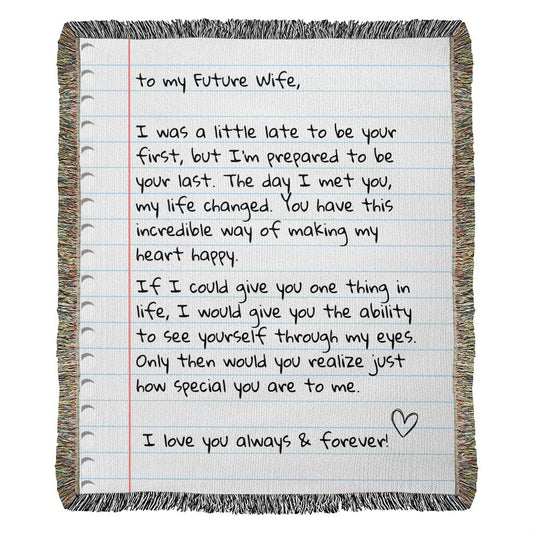 to my Future Wife,
I was a little late to be your
first, but I'm prepared to be
your last. The day I met you,
my life changed. You have this
incredible way of making my
heart happy.
If I could give you one thing in
life, I would give you the ability
to see yourself through my eyes.
Only then would you realize just
how special you are to me.
I love you always & forever!